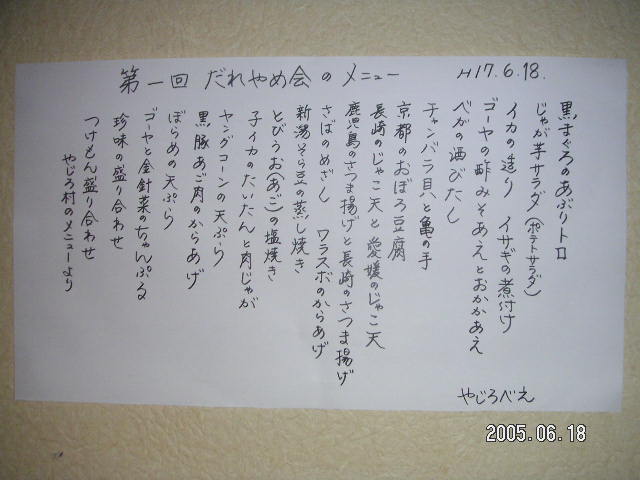 第一回 だれやめ会のメニュー
H17.6.18.
黒まぐろのあぶりトロ
じゃが芋サラダ(ポテトサラダ)
イカの造り イサギの煮付け
ゴーヤの酢みそあえとおかかあえ
べカの酒びたし
チャンバラ貝と亀の手
京都のおぼろ豆腐
長崎のじゃこ天と愛媛のじゃこ天
鹿児島のさつま揚げと長崎のさつま揚げ
さばのめざし ワラスボのからあげ
新潟そら豆の蒸し焼き
とびうお(あご)の塩焼き
子イカのたいたんと肉じゃが
ヤングコーンの天ぷら
黒豚あご肉のからあげ
ぼらめの天ぷら
ゴーヤと金針菜のちゃんぷる
珍味の盛り合わせ
つけもん盛り合わせ
やじろ村のメニューより
やじろべえ
2005.06.18